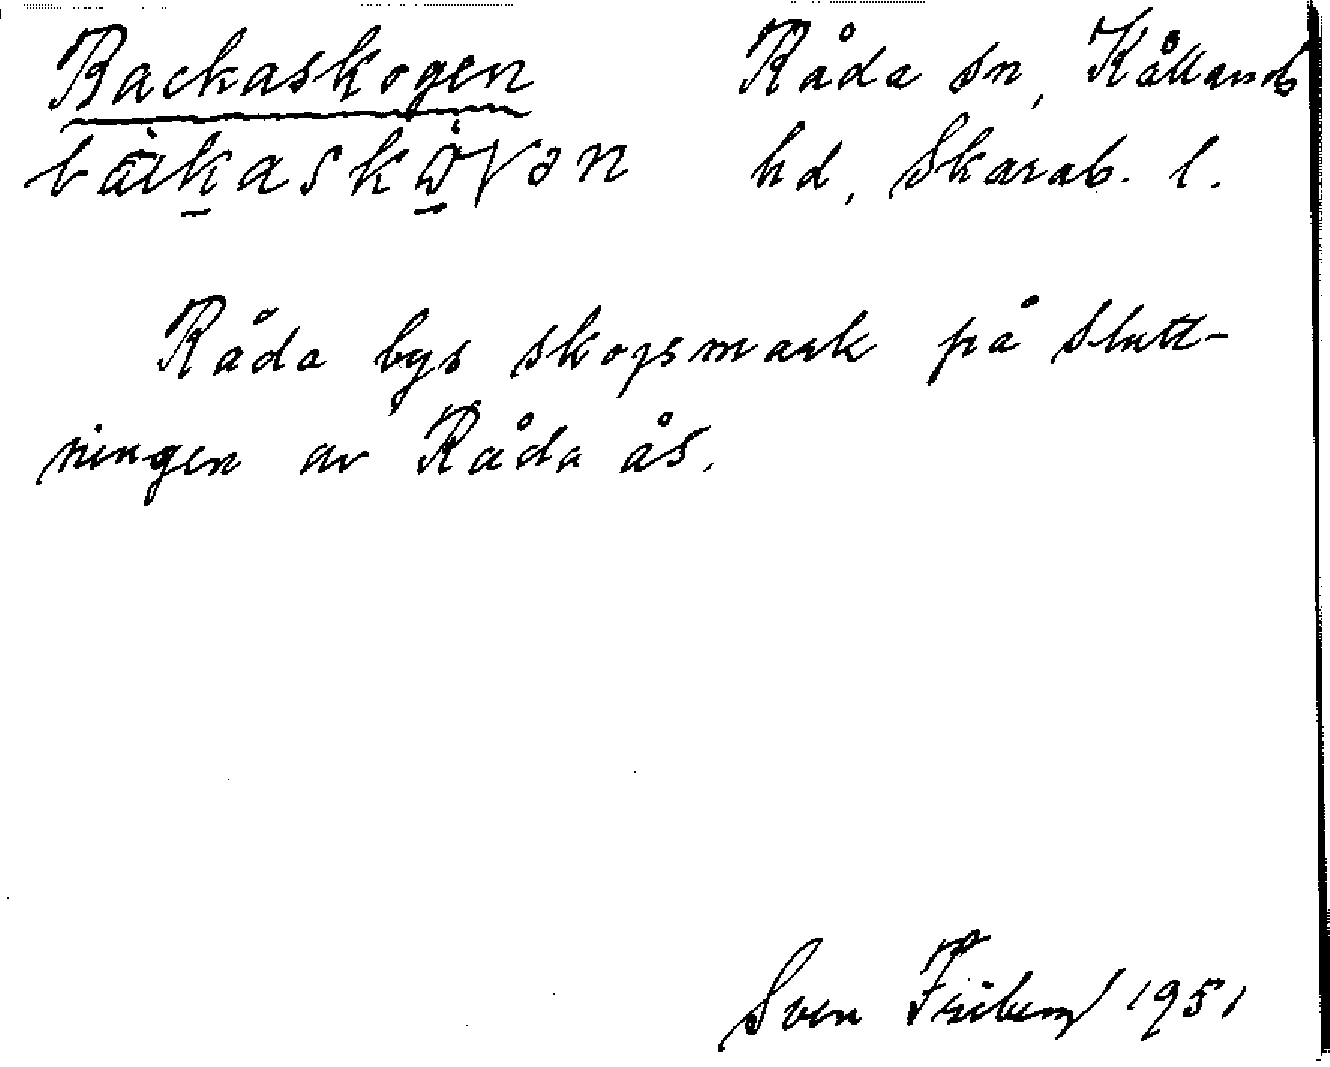 Backaskogen
Råda sn, Kållands
hd, Skarab. l.
Råda bys skogsmark på slutt-
ningen av Råda ås.
Sven Friberg 1951